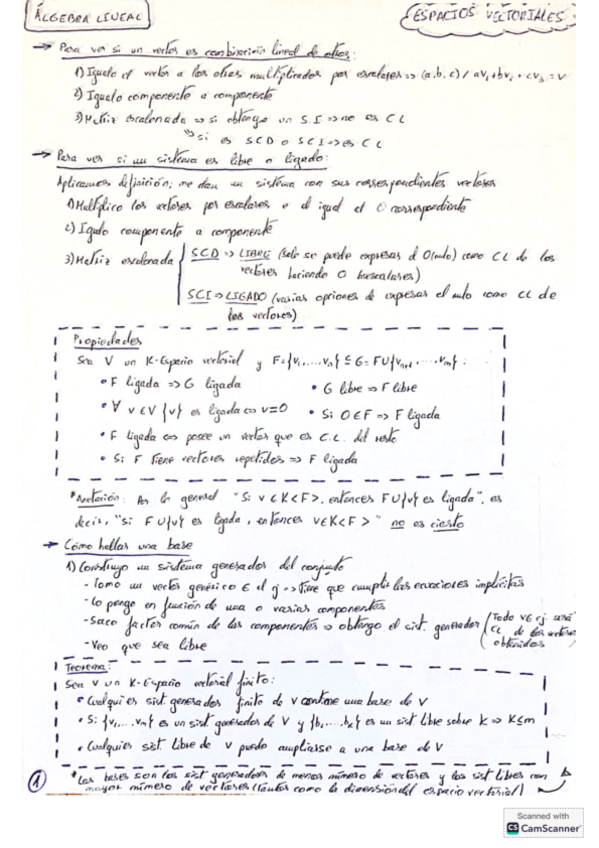 ÁLGEBRA LINEAL
ESPACIOS VECTORIALES
→ Para ver si un vector es combinación lineal de otros:
1) Igualo el vector a los otros multiplicados por escalares => (a,b,c) / av₁+bv₂+cv₃=v
2) Igualo componente a componente
3) Matriz escalonada => si obtengo un S.I => no es CL
si es SCD o SCI => es CL
→ Para ver si un sistema es libre o ligado:
Aplicamos definición; me dan un sistema con sus correspondientes vectores
1) Multiplico los vectores por escalares e igual el 0 correspondiente
2) Igualo componente a componente
3) Matriz escalonada
SCD => LIBRE (solo se puede expresar el 0(nulo) como CL de los
vectores haciendo 0 los escalares)
SCI => LIGADO (varias opciones de expresar el nulo como CL de
los vectores)
Propiedades
Sea V un K-Espacio vectorial y F={v₁,...,vₙ} ⊆ G=F∪{vₙ₊₁,...,vₘ}:
• F ligada => G ligada
• G libre => F libre
• ∀ v∈V {v} es ligada <=> v=0
• Si 0∈F => F ligada
• F ligada <=> posee un vector que es C.L. del resto
• Si F tiene vectores repetidos => F ligada
*Anotación: En lo general "Si v∈K<F>, entonces F∪{v} es ligada", es
decir, "Si F∪{v} es ligada, entonces v∈K<F>" no es cierto
→ Cómo hallar una base
1) Construyo un sistema generador del conjunto
- Tomo un vector genérico ∈ el cj => Tiene que cumplir las ecuaciones implícitas
- Lo pongo en función de una o varias componentes
- Saco factor común de las componentes => obtengo el sist. generador (Todo v∈cj. será
CL de los vectores
obtenidos)
- Veo que sea libre
Teorema:
Sea V un K-Espacio vectorial finito:
• Cualquier sist. generador finito de V contiene una base de V
• Si {v₁,...,vₘ} es un sist generador de V y {b₁,...,bₖ} es un sist libre sobre K => K≤m
• Cualquier sist. libre de V puede ampliarse a una base de V
1
*Las bases son los sist generadores de menos número de vectores y los sist libres con
mayor número de vectores (tantos como la dimensión del espacio vectorial)
Scanned with
CS CamScanner